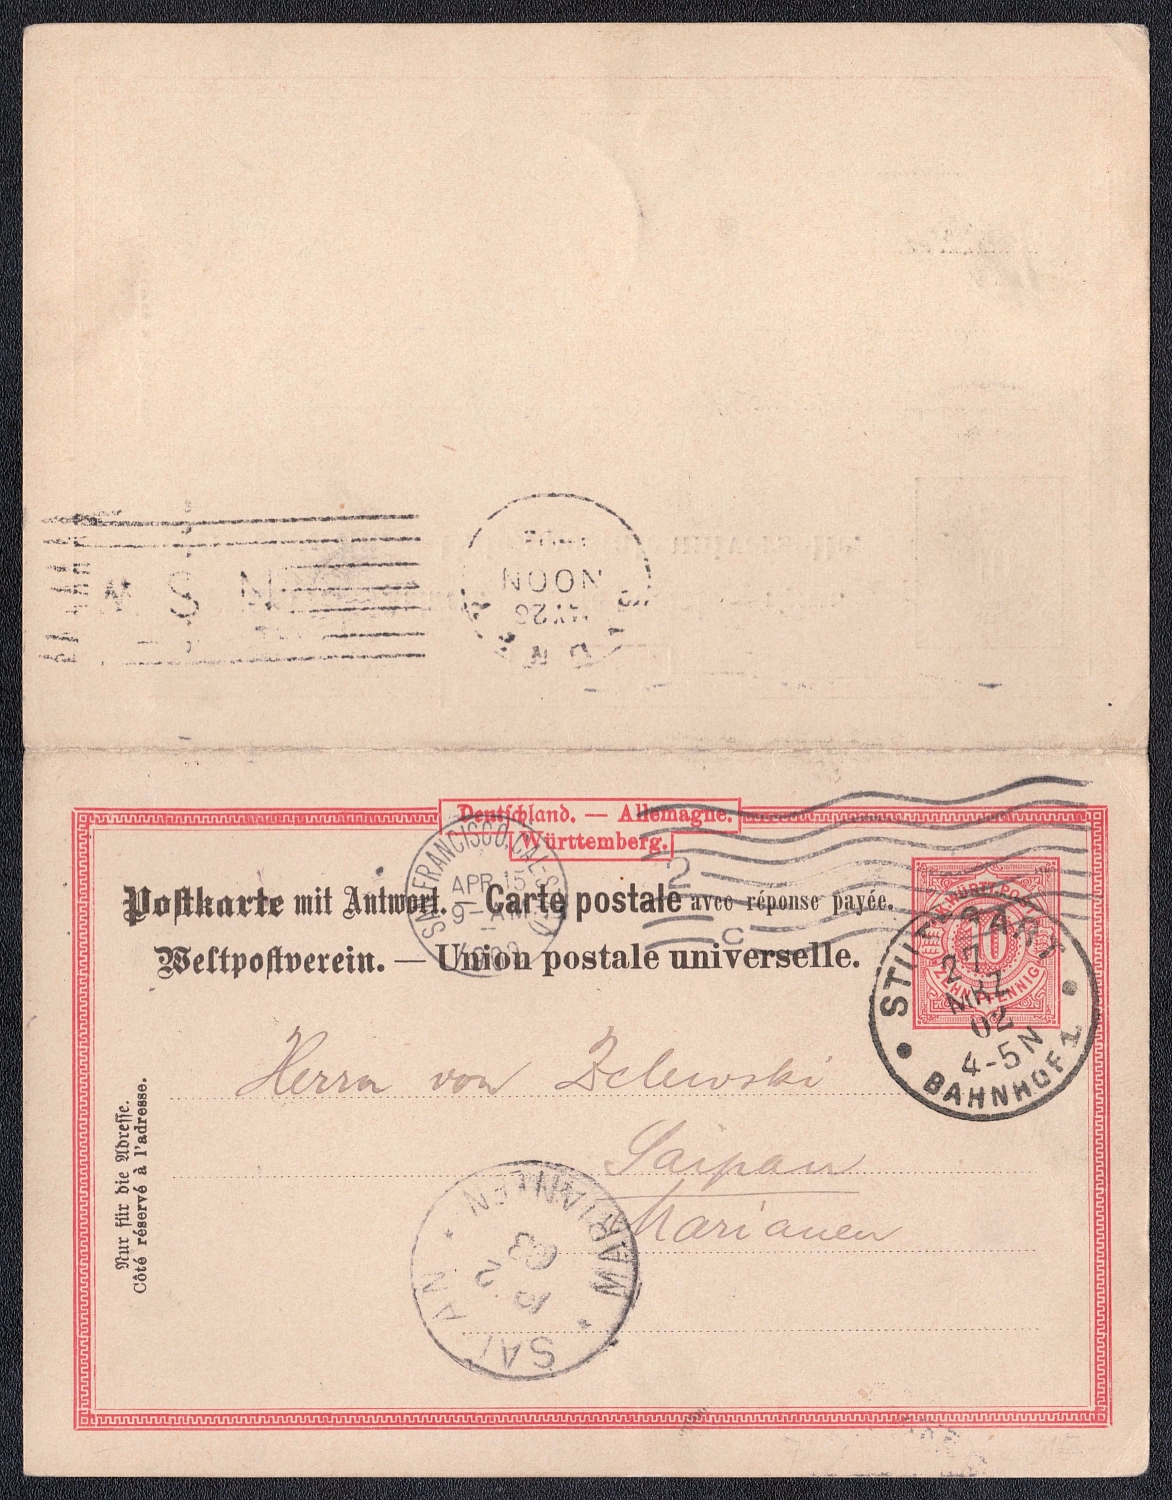 N S W
NOON
MY 26
Deutschland. — Allemagne.
Württemberg.
SAN FRANCISCO, CAL-STA
APR 15
9-AM
2
C
Postkarte mit Antwort. — Carte postale avec réponse payée.
Weltpostverein. — Union postale universelle.
K. WÜRTT. POST
10
ZEHN PFENNIG
STUTTGART
27
MRZ
02
4-5N
BAHNHOF 1
Herrn von Zelewski
Saipan
Marianen
Nur für die Adresse.
Côté réservé à l'adresse.
SAIPAN * MARIANNEN *
12 2
03